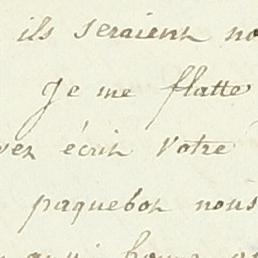 ils seraient no
Je me flatte
vez écrit votre
paquebot nous